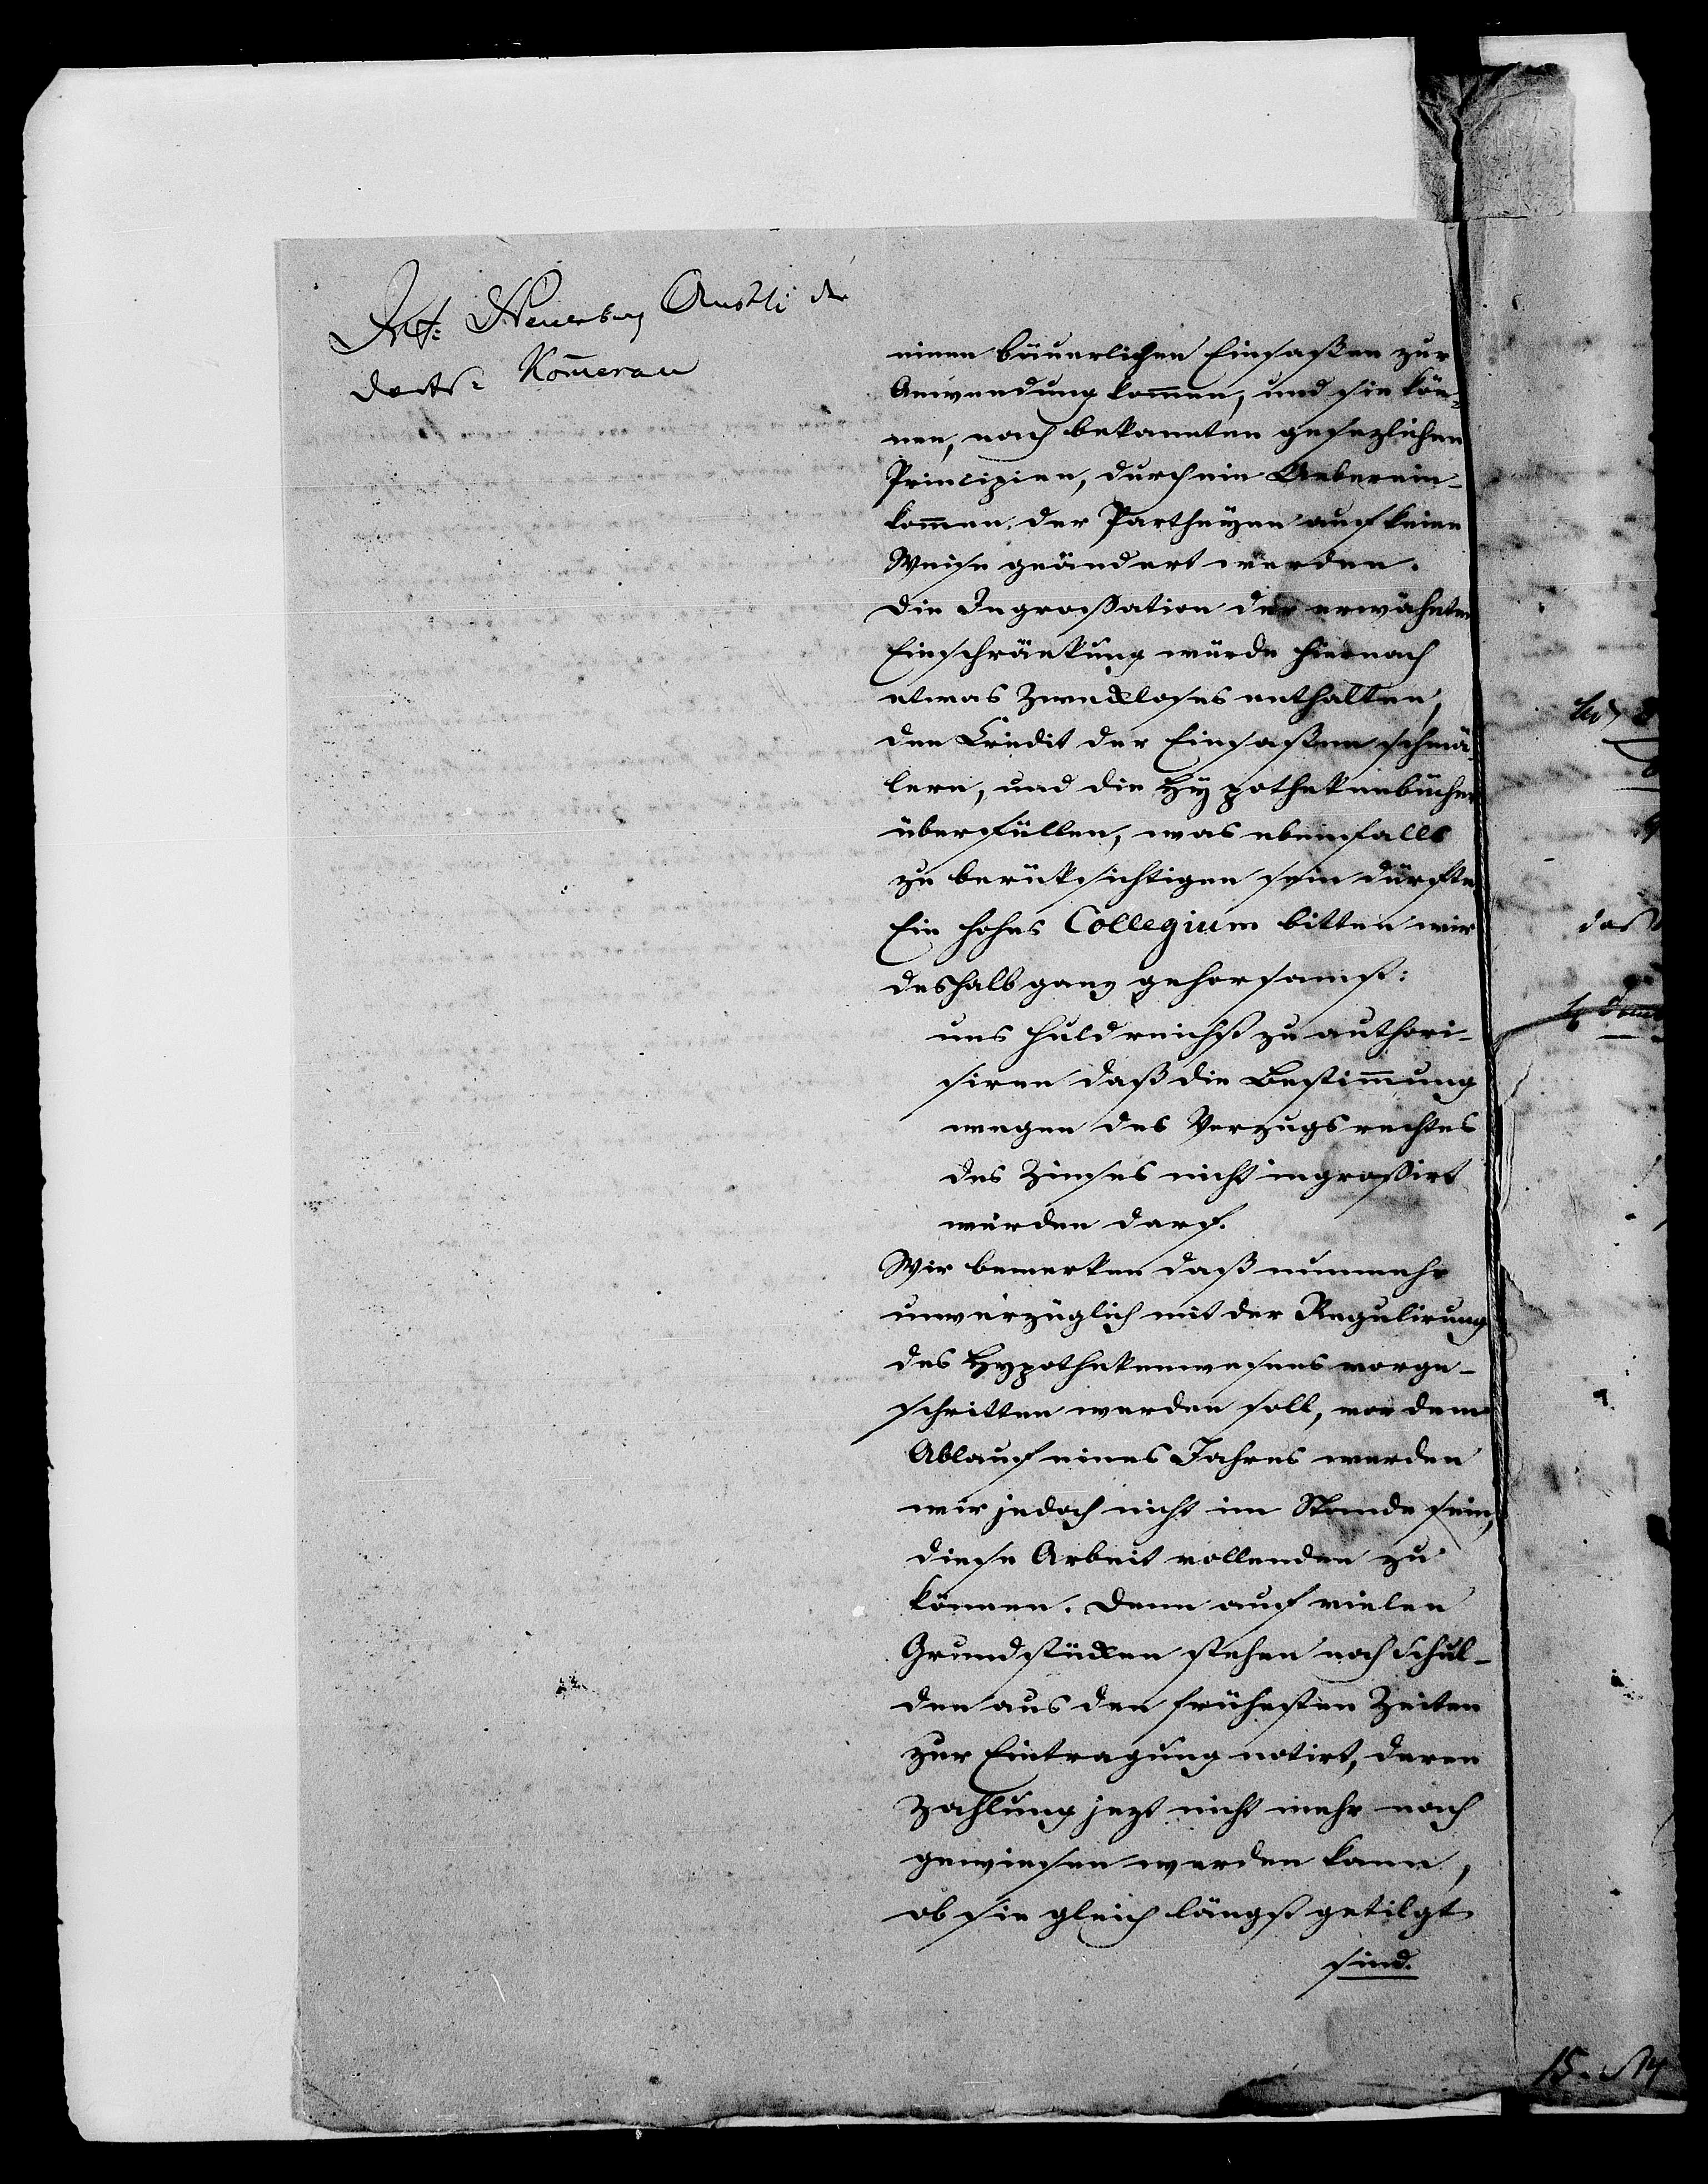 Act: Neuenburg
Komerau
einen bäuerlichen Einsaßen zur
Anwendung komen, und sie kön-
nen, nach bekannten gesezlichen
Principien, durch ein Ueberein-
komen der Partheyen auf keine
Weise geändert werden.
Die Ingroßation der erwähnten
Einschränkung würde hienach
etwas Zweckloses enthalten,
den Credit der Einsaßen schmä-
lern, und die Hypothekenbücher
überfüllen, was ebenfalls
zu berüksichtigen sein dürfte
Ein hohes Collegium bitten wir
deshalb ganz gehorsamst:
uns huldreichst zu authori-
siren daß die Bestimung
wegen des Vorzugsrechtes
des Zinses nicht ingroßirt
werden darf.
Wir bemerken daß nunmehr
unverzüglich mit der Regulirung
des Hypothekenwesens vorge-
schritten werden soll, vor dem
Ablauf eines Jahres werden
wir jedoch nicht im Stande sein,
diese Arbeit vollenden zu
können. Denn auf vielen
Grundstücken stehen noch Schul-
den aus den frühesten Zeiten
zur Eintragung notirt, deren
Zahlung jezt nicht mehr nach
gewiesen werden kann,
ob sie gleich längst getilgt
sind.
daß
15.